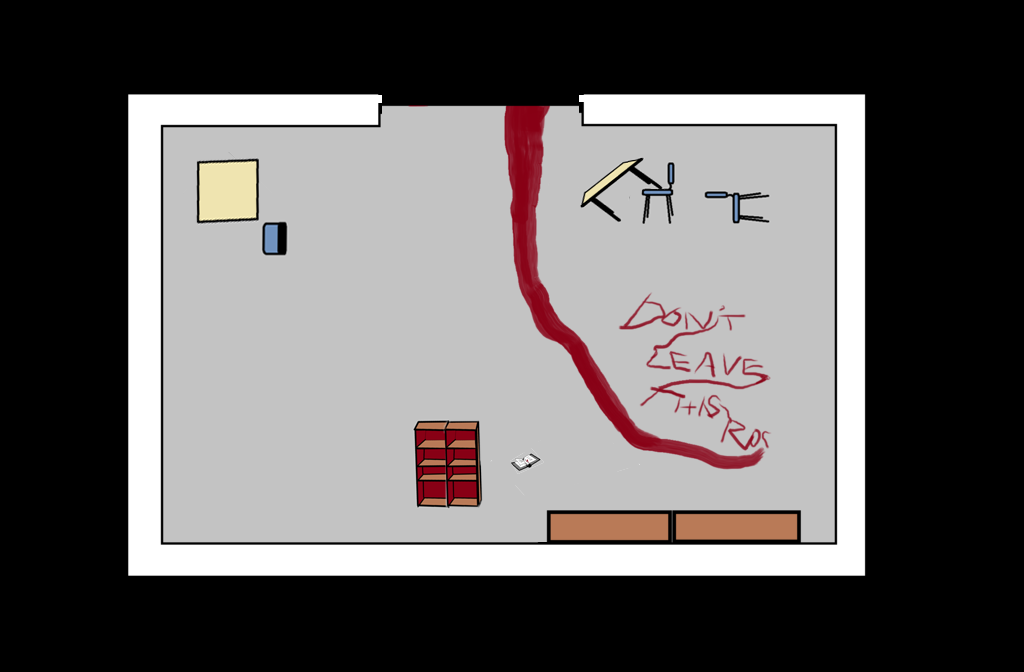 DON'T
LEAVE
THIS
ROO